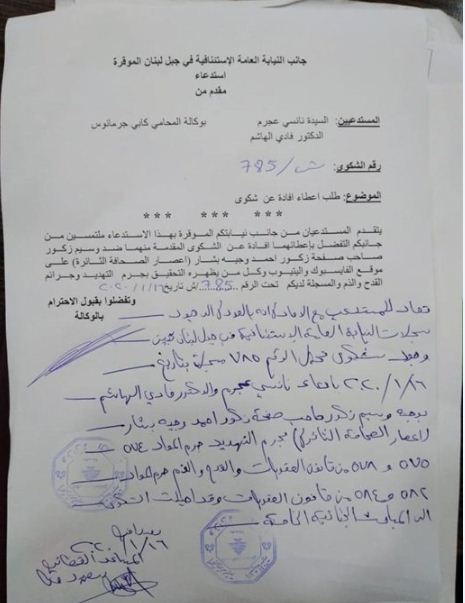 جانب النيابة العامة الإستئنافية في جبل لبنان الموقرة
استدعاء
مقدم من
المستدعيين: السيدة نانسي عجرم بوكالة المحامي كابي جرمانوس
الدكتور فادي الهاشم
رقم الشكوى: 785/ش
الموضوع: طلب اعطاء افادة عن شكوى
*** *** ***
يتقدم المستدعيان من جانب نيابتكم الموقرة بهذا الاستدعاء ملتمسين من
جانبكم التفضل بإعطائهما افادة عن الشكوى المقدمة منهما ضد وسيم زكور
صاحب صفحة زكور احمد وجيه بشار (اعصار الصحافة الثائرة) على
موقع الفايسبوك واليتيوب وكل من يظهره التحقيق بجرم التهديد وجرائم
القدح والذم والمسجلة لديكم تحت الرقم 785/ش تاريخ ٢٠٢٠/١/١٦
وتفضلوا بقبول الاحترام
بالوكالة
تعاد للمستدعي مع الإفادة انه بالعودة الى
سجلات النيابة العامة الإستئنافية في جبل لبنان تبين
وجود شكوى تحمل الرقم ٧٨٥ مسجلة بتاريخ
٢٠٢٠/١/١٦ نانسي عجرم والدكتور فادي الهاشم
بوجه وسيم زكور صاحب صفحة زكور احمد وجيه بشار
(اعصار الصحافة الثائرة) بجرم التهديد جرم المواد ٥٧٤
٥٧٥ و ٥٧٨ من قانون العقوبات والقدح والذم جرم المواد
٥٨٢ و ٥٨٤ من قانون العقوبات وقد احيلت الشكوى
الى المباحث الجنائية الخاصة
١/١٦